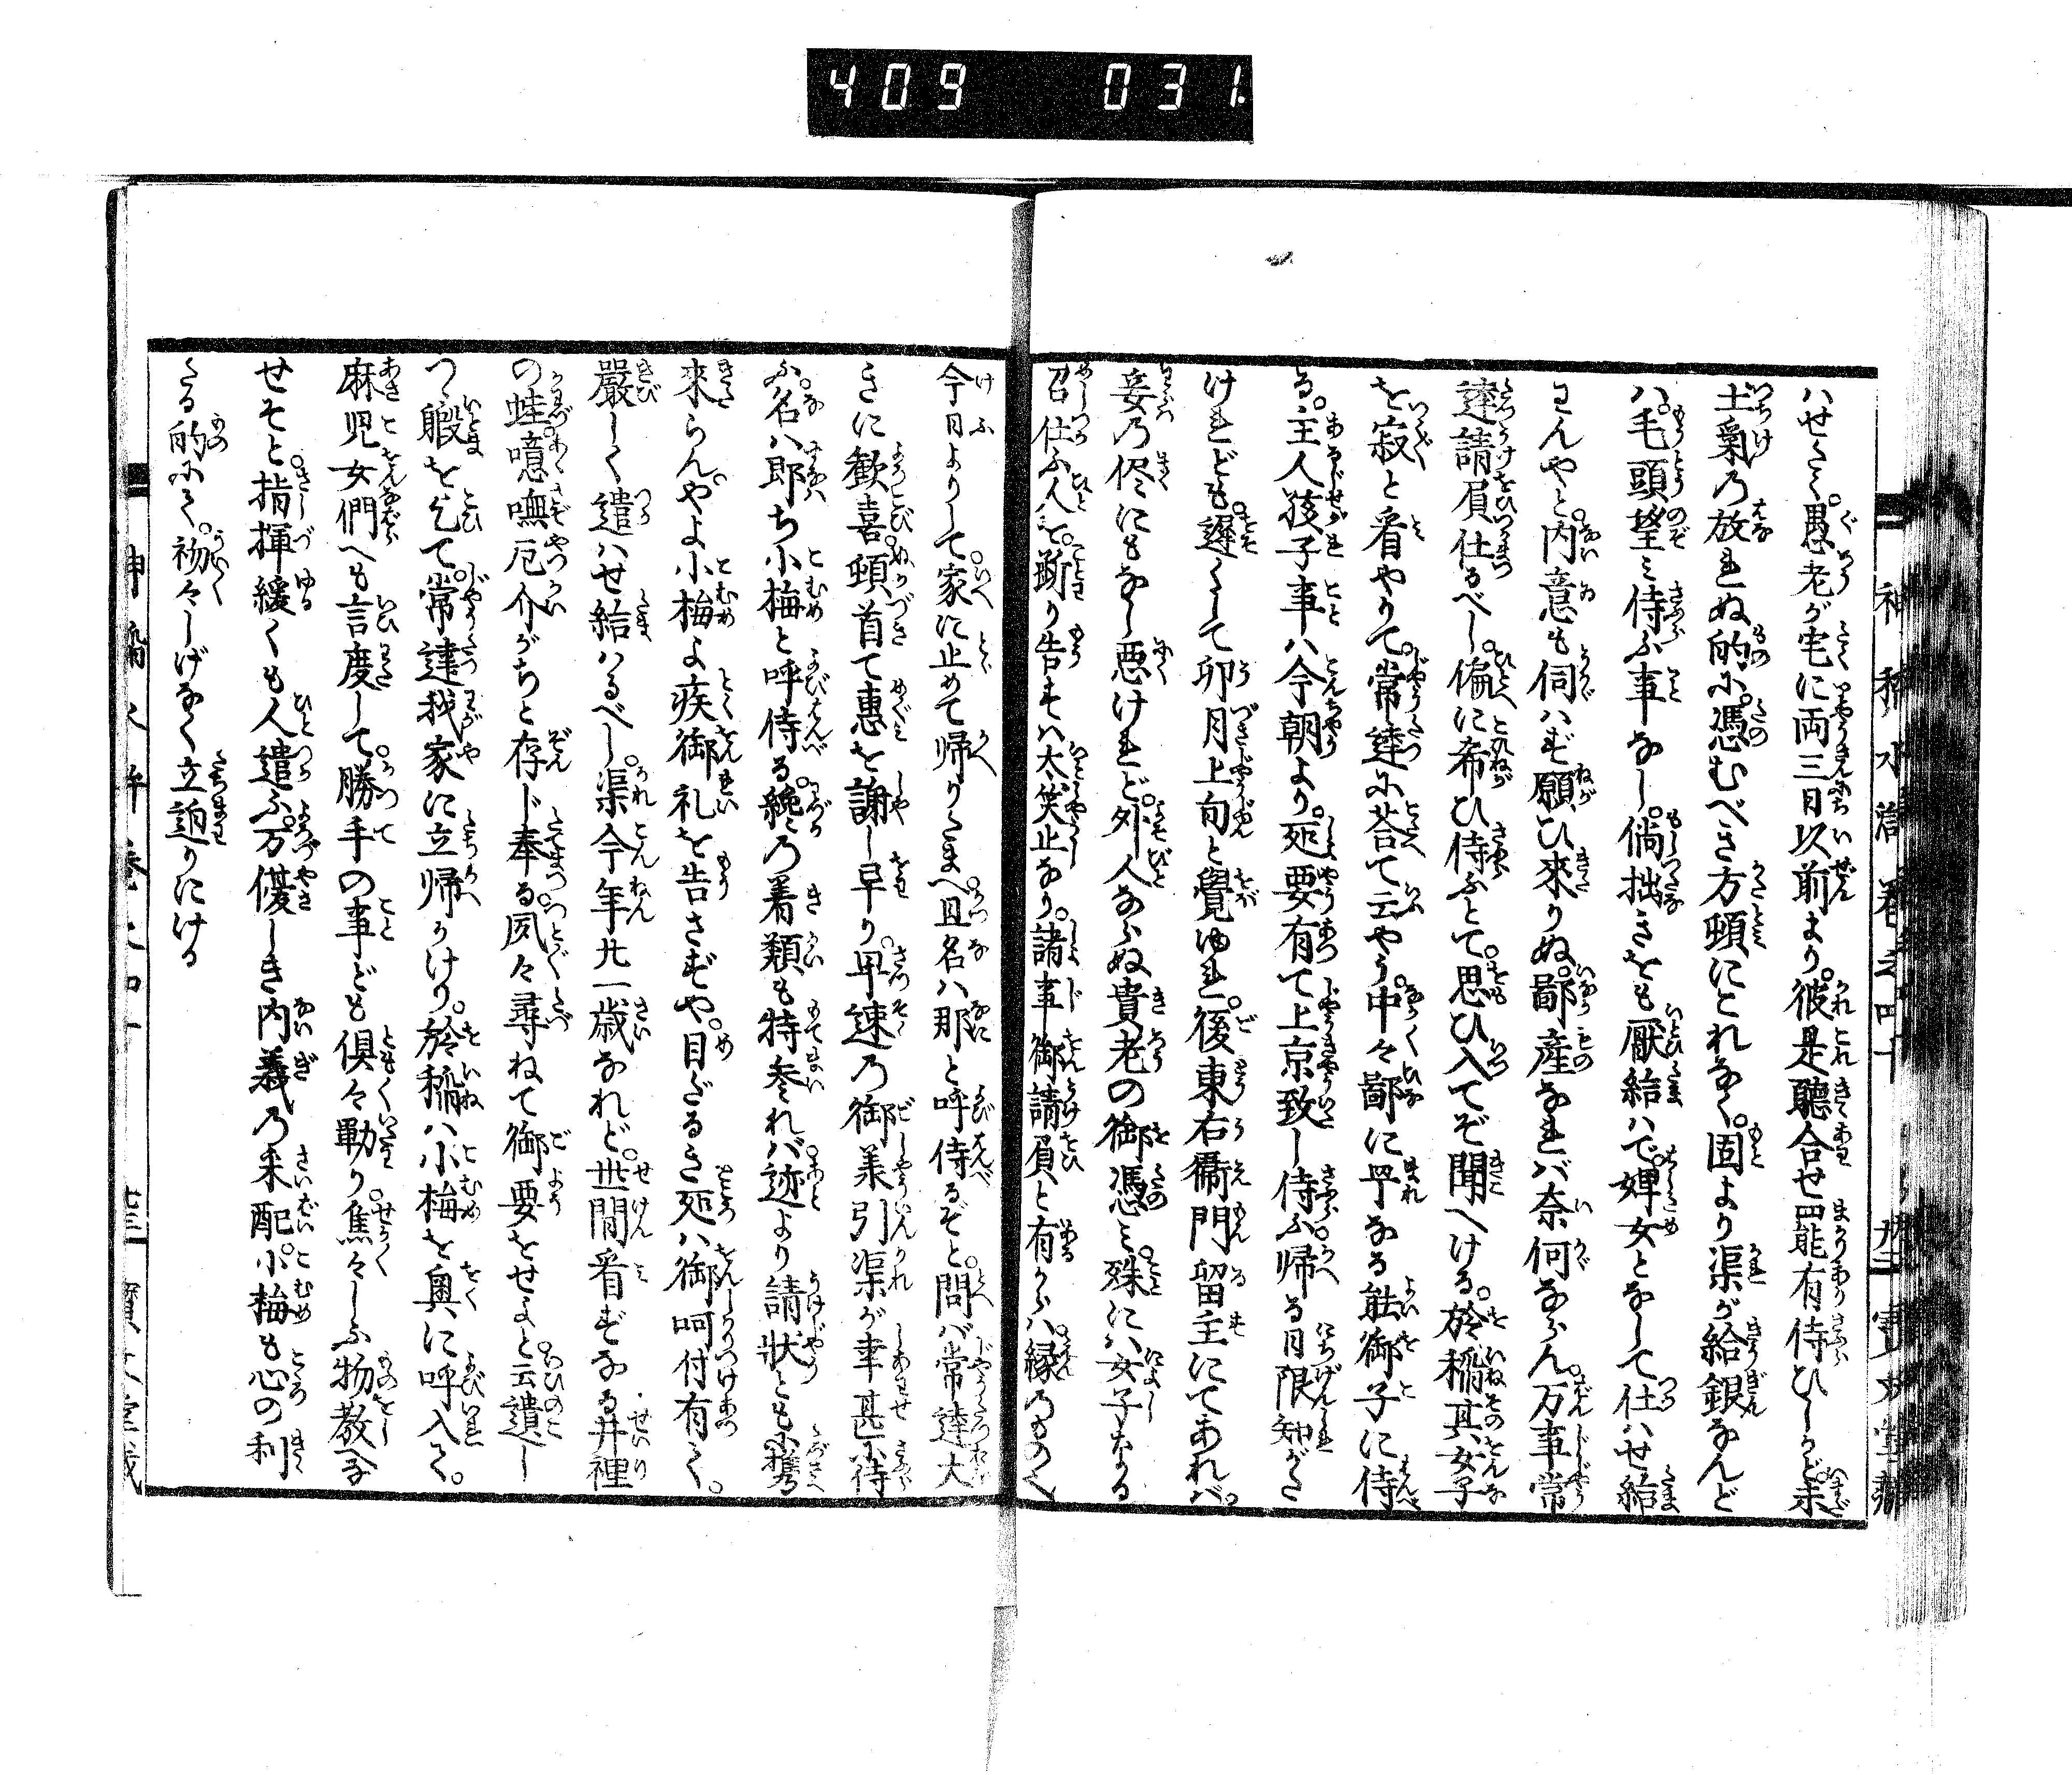 409 031
ハせて。愚老が宅に両三日以前より。彼是聽合せ罷有侍ひしかど。未
土気の放れぬ的に。憑むべき方頓にこれなく。固より渠が給銀なんど
ハ。毛頭望ミ侍ふ事なし。倘拙きをも厭給ハで。婢女となして仕ハせ給
らんやと。内意も伺ハず願ひ來りぬ。鄙産なれバ奈何ならん。万事常
達請負仕るべし。偏に希ひ侍ふとて。思ひ入てぞ聞へける。於稲其女子
を寂と看やりて。常達に荅て云やう。中々鄙に罕なる能御子に侍
る。主人孩子事ハ今朝より。要有て上京致し侍ふ。帰る日限知がた
けれども。遅くして卯月上旬と覺ゆれ。後東右衞門留主にてあれバ。
妾乃侭にもなし悪けれど。外人ならぬ貴老の御憑ミ。殊にハ女子なる
召仕ふ人を。断り告すハ太笑止なり。諸事御請負と有からハ。縁乃ものへ
今日よりして家に止めて帰りたまへ。且名ハ那と呼侍るぞと。問バ常達大
きに歓喜。頓首て惠を謝し畢り。早速乃御羕引渠が幸甚に侍
ふ。名ハ郎ち小梅と呼侍る。纔乃着類も持参れバ。迹より請狀とも携
來らんやよ小梅よ疾御礼を告さずや。目だるき処ハ御呵付有て。
嚴しく遣ハせ給ハるべし。渠今年廿一歳なれど。世間看ずなる井裡
の蛙。噫嘸厄介がちと存じ奉る。夙々尋ねて御要をせよと。云遺し
つゝ暇を乞て。常達我家に立帰りけり。於稲ハ小梅を奥に呼入て。
麻児女們へも言度して。勝手の事ども倶々勦り。焦々しふ物教給
せそと。指揮緩くも人遣ふ。万優しき内義乃采配。小梅も心の利
たる的にて。初々しげなく立廻りにける